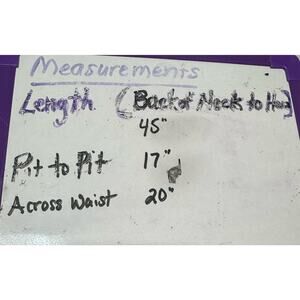 Measurements
Length (Back of Neck to Hem)
45"
Pit to Pit 17"
Across Waist 20"